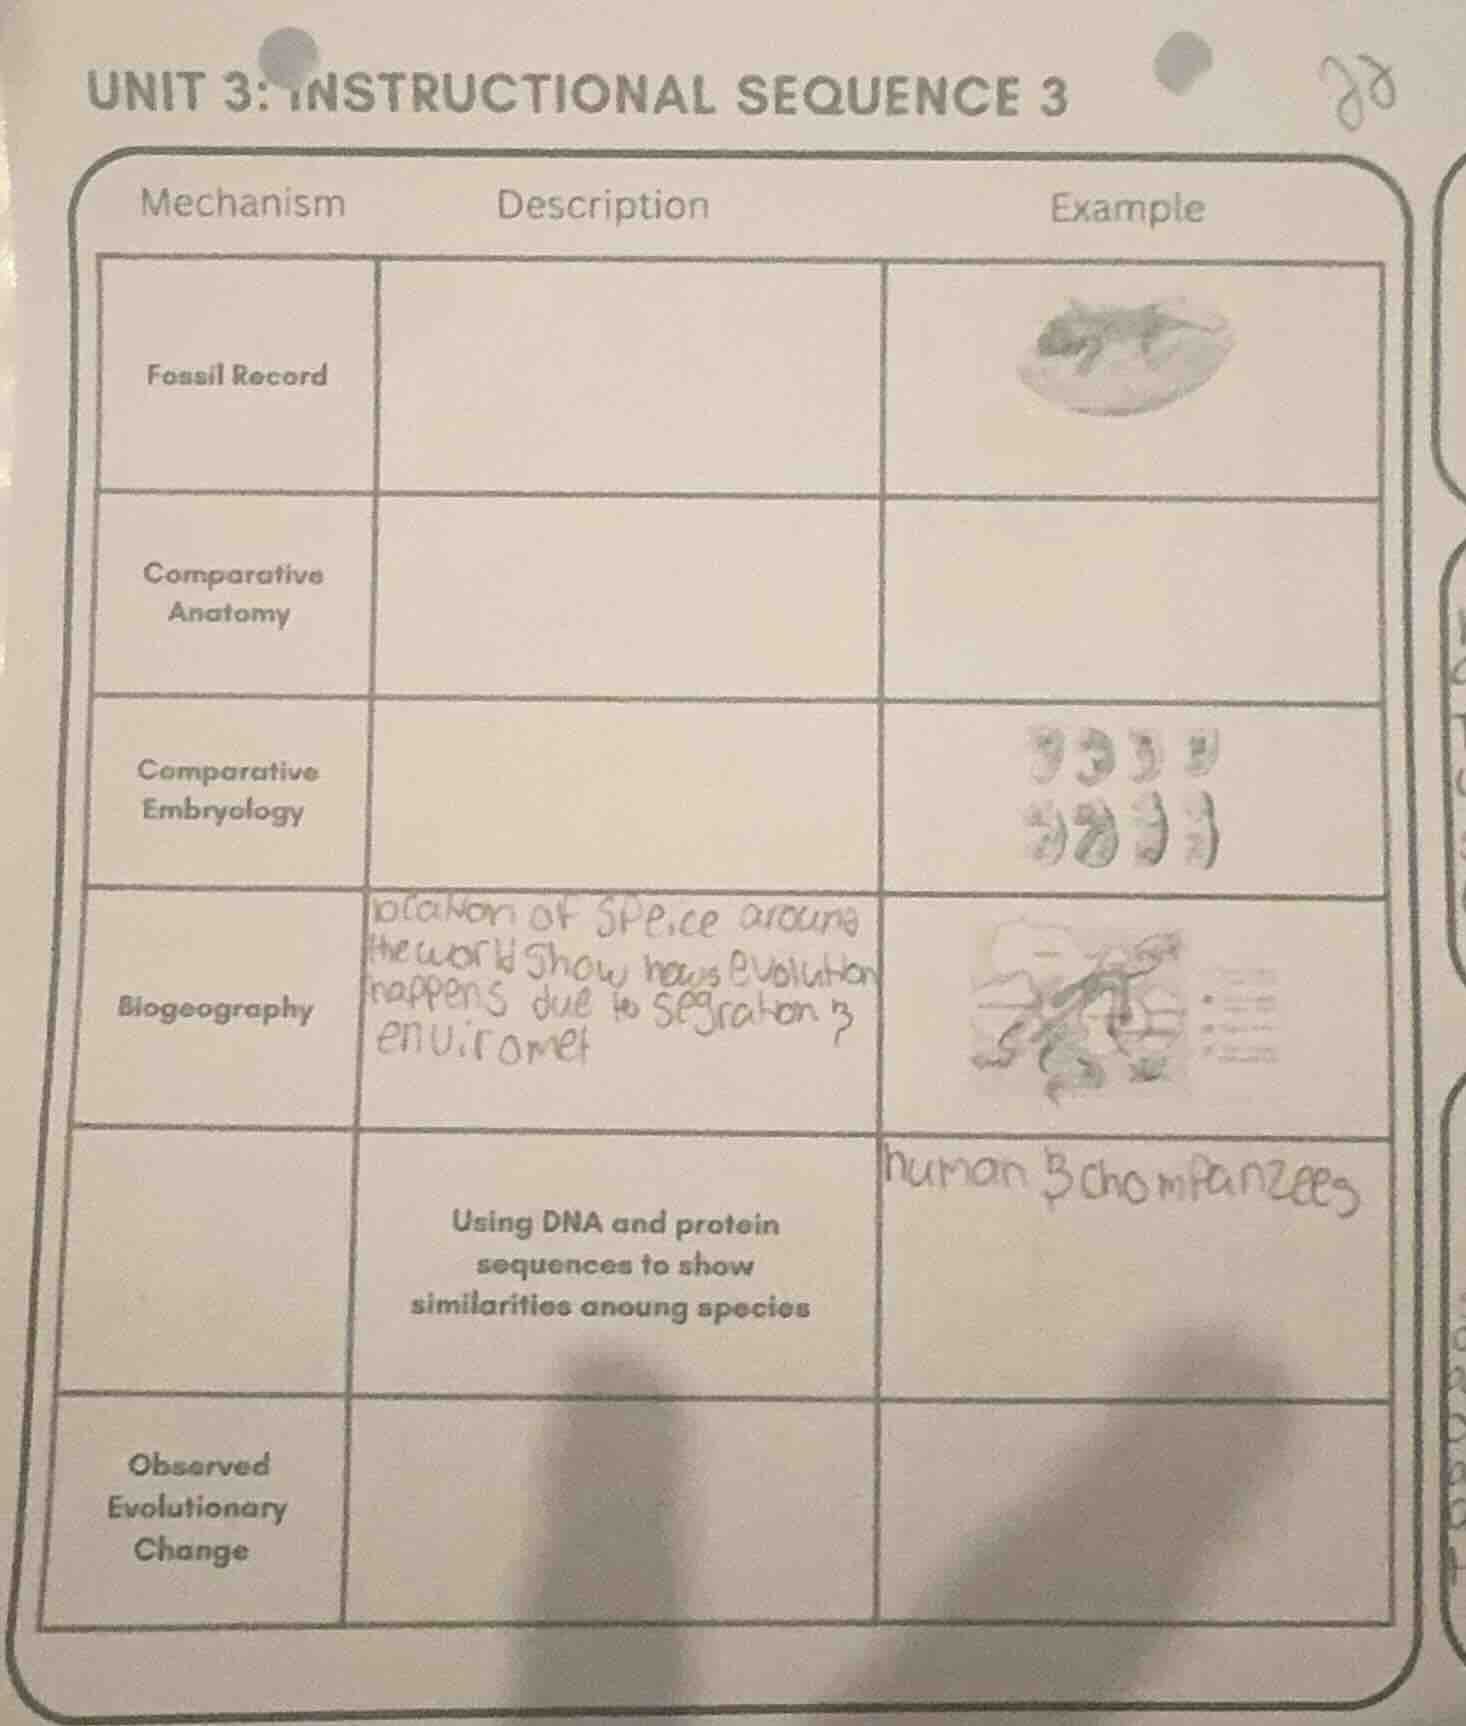 UNIT 3: INSTRUCTIONAL SEQUENCE 3
22
Mechanism Description Example
Fossil Record
Comparative
Anatomy
Comparative
Embryology
Biogeography
location of Speice around
the world show hows evolution
happens due to segration &
enviromet
Using DNA and protein
sequences to show
similarities anoung species
human & chompanzees
Observed
Evolutionary
Change